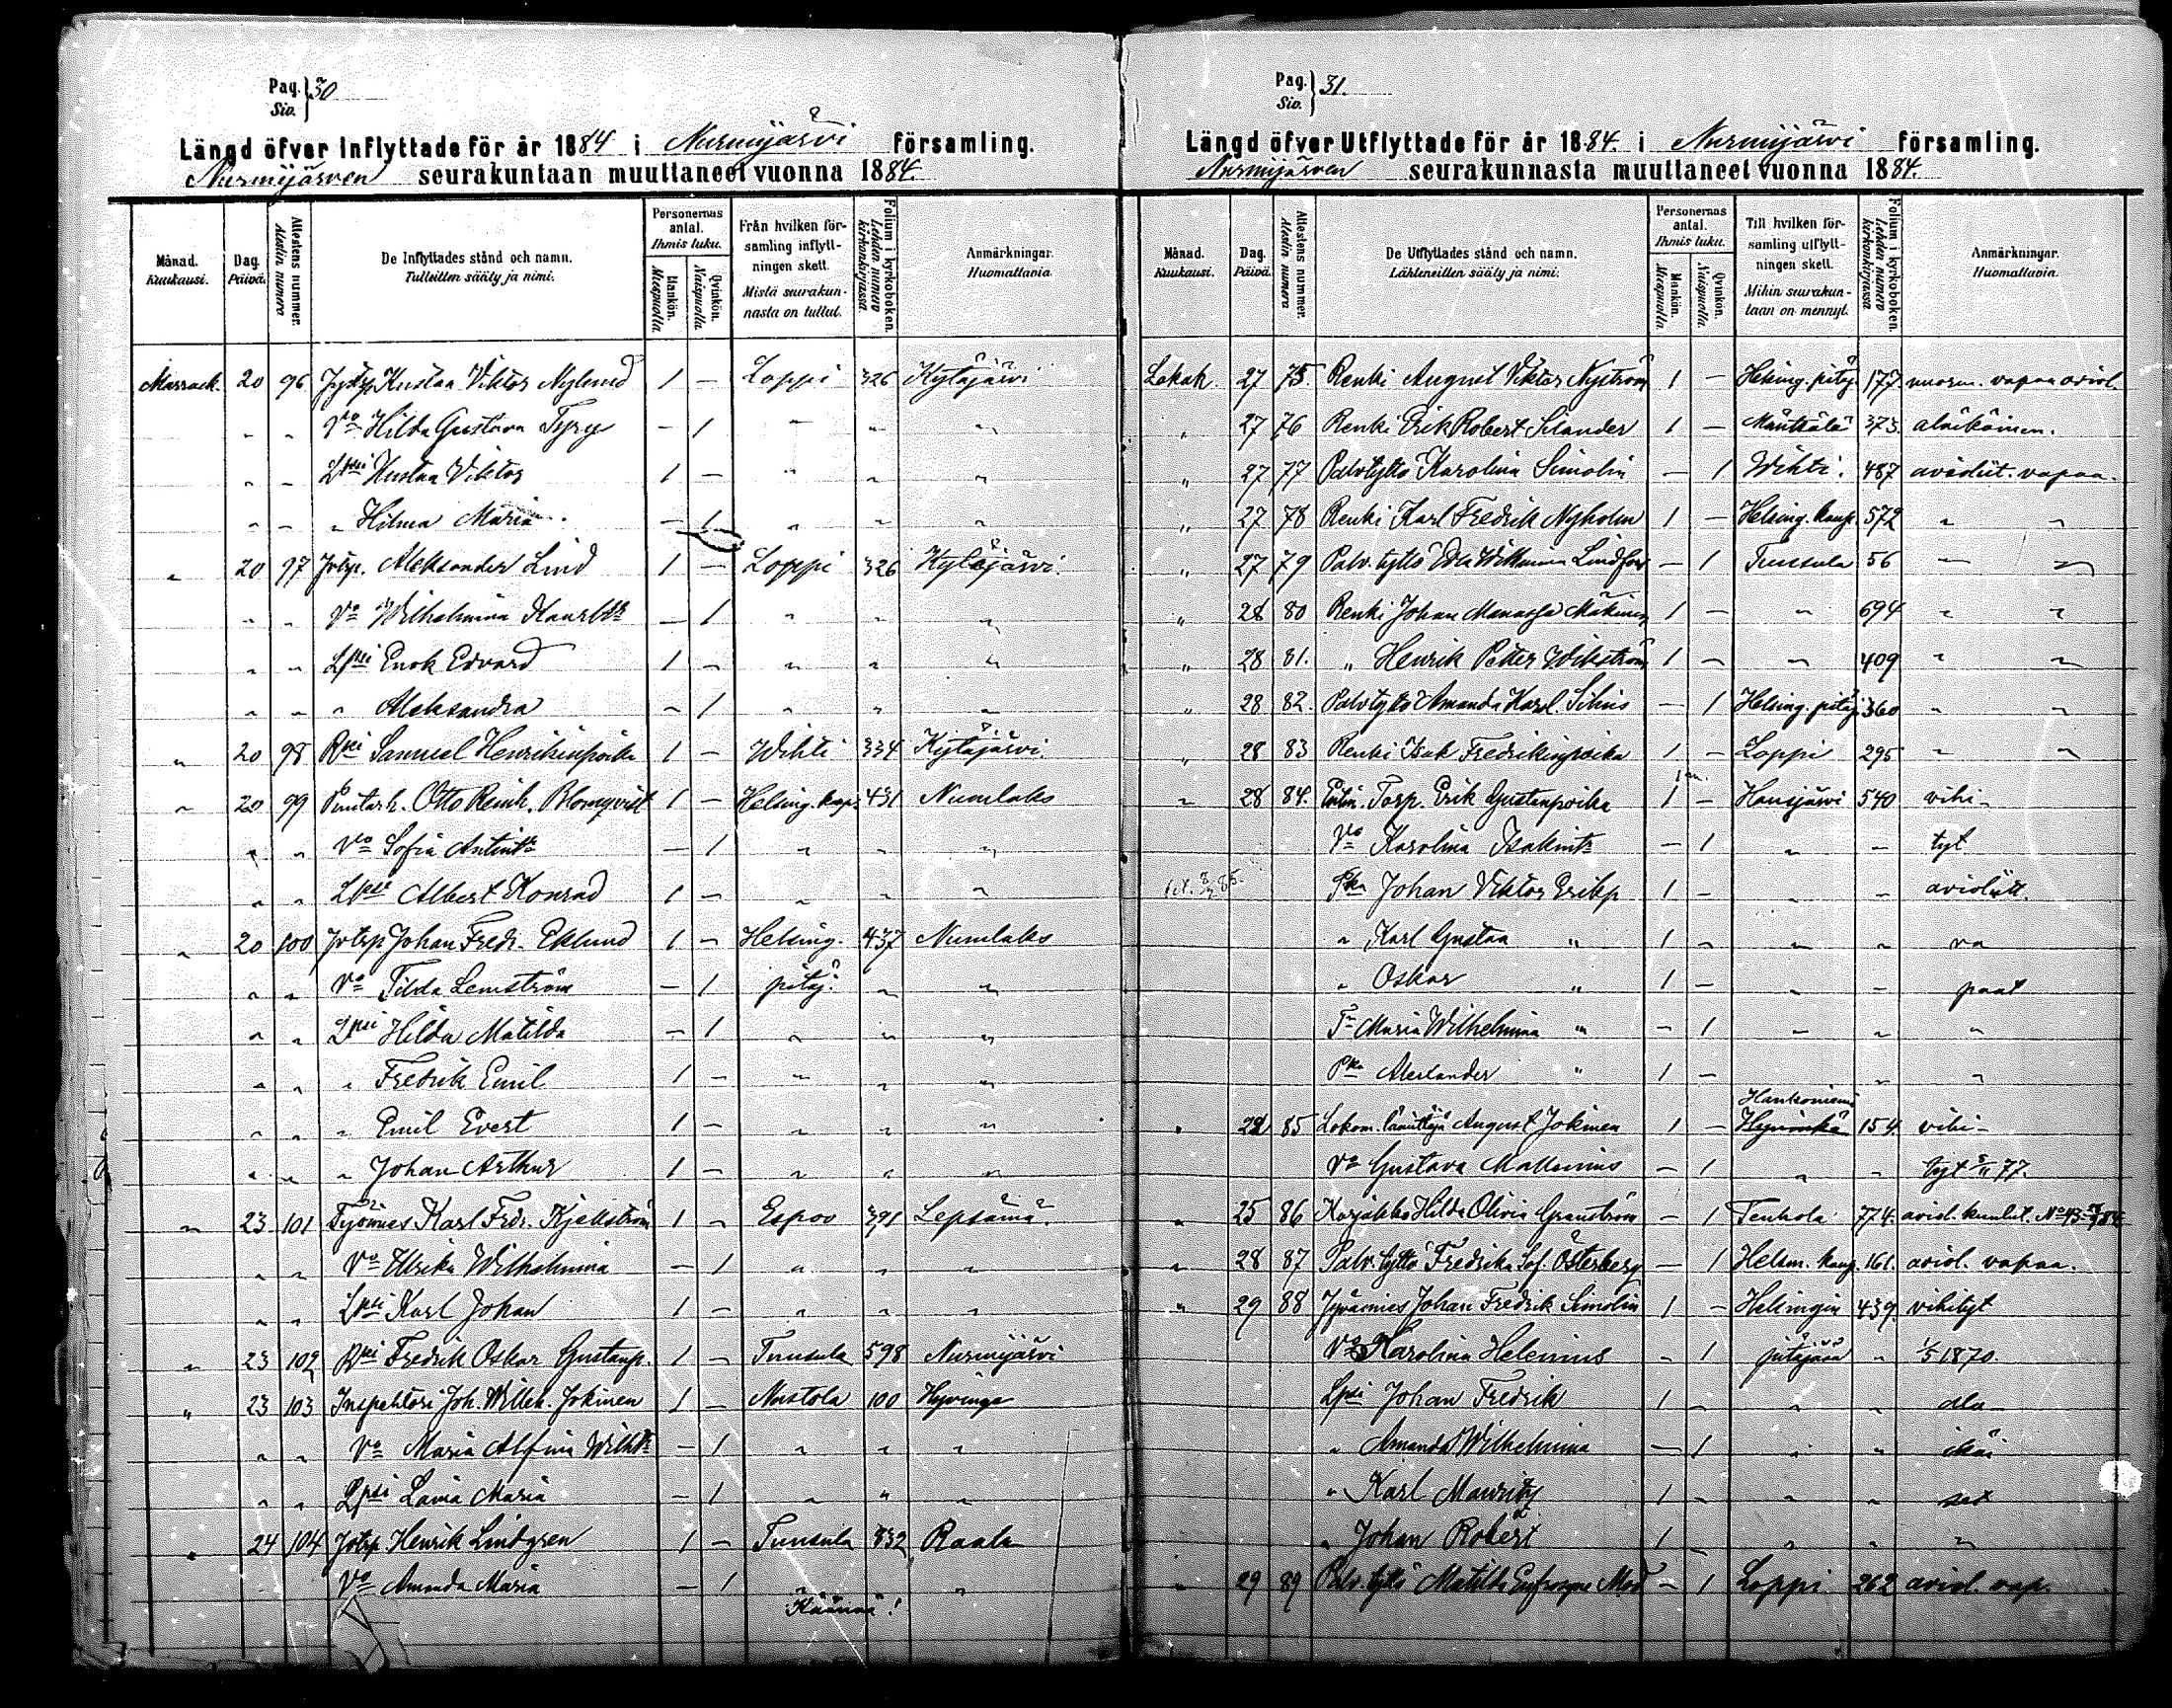 Pag. Siv. 30
Längd öfver Inflyttade för år 1884 i Nurmijärvi församling.
Nurmijärven seurakuntaan muuttaneet vuonna 1884.
Månad. Kuukausi.
Dag. Päivä.
Attestens nummer. Alestin numero
De Inflyttades stånd och namn. Tulleitten sääty ja nimi.
Personernas antal. Ihmis luku.
Mankön. Miespuolia
Qvinkön. Naispuolia
Från hvilken församling inflyttningen skett. Mistä seurakunnasta on tullut.
Folium i kyrkoboken. Lehden numero kirkonkirjassa
Anmärkningar. Huomattavia
Marrask. 20 96 Kustaa Viktor Nylund 1 – Loppi 326 Kytäjärvi
" " Vo Hilda Gustava Tyry – 1 " " "
" " Lpsi Kustaa Viktor 1 – " " "
" " " Hilma Maria – 1 " " "
" 20 97 Jotsp. Aleksander Lind 1 – Loppi 326 Kytäjärvi
" " Vo Wilhelmina – 1 " " "
" " Lpsi Enok Edvard 1 – " " "
" " " Aleksandra – 1 " " "
" 20 98 Rki Samuel Henrikinpoika 1 – Wihti 334 Kytäjärvi
" 20 99 Puutarh. Otto Reinh. Blomqvist 1 – Helsing. kaup. 431 Numlaks
" " Vo Sofia Antint. – 1 " " "
" " Lpsi Albert Konrad 1 – " " "
" 20 100 Jotsp Johan Fredr. Eklund 1 – Helsing. 437 Numlaks
" " Vo Tilda Lemström – 1 pitäj. " "
" " Lpsi Hilda Matilda – 1 " " "
" " " Fredrik Emil 1 – " " "
" " " Emil Evert 1 – " " "
" " " Johan Arthur 1 – " " "
" 23 101 Työmies Karl Fredr. Kjellström 1 – Espoo 391 Lepsämä
" " Vo Ulrika Wilhelmina – 1 " " "
" " Lpsi Karl Johan 1 – " " "
" 23 102 Rki Fredrik Oskar Gustafsp. 1 – Tuusula 598 Nurmijärvi
" 23 103 Inspehtori Joh. Willeh. Jokinen 1 – Nastola 100 Hyvinge
" " Vo Maria Alfina – 1 " " "
" " Lpsi Laina Maria – 1 " " "
" 24 104 Jotsp Henrik Lindgren 1 – Tuusula 832 Raala
Vo Amanda Maria – 1 " " "
Käännä!
Pag. Siv. 31.
Längd öfver Utflyttade för år 1884. i Nurmijärvi församling.
Nurmijärven seurakunnasta muuttaneet vuonna 1884.
Månad. Kuukausi.
Dag. Päivä.
Attestens nummer. Alestin numera
De Utflyttades stånd och namn. Lähteneitten sääty ja nimi.
Personernas antal. Ihmis luku.
Mankön. Miespuolia
Qvinkön. Naispuolia
Till hvilken församling utflyttningen skett. Mihin seurakuntaan on mennyt.
Folium i kyrkoboken. Lehden numero kirkonkirjassa
Anmärkningar. Huomattavia.
Lokak. 27 75. Renki August Viktor Nyström 1 – Helsing. pitäj. 177 nuorm. vapaa aviol.
" 27 76 Renki Erik Robert Silander 1 – Mäntsälä 373. alaikäinen.
" 27 77 Palv. tyttö Karolina Simolin – 1 Wihti. 487 avioliit. vapaa.
" 27 78 Renki Karl Fredrik Nyholm 1 – Helsing. kaup. 572 " "
" 27 79 Palv. tyttö Edla Wilhelmina Lindfors – 1 Tuusula 56 " "
" 28 80 Renki Johan Manasse Mäkinen 1 – " 694 " "
" 28 81. " Henrik Petter Wikström 1 – " 409 " "
" 28 82. Palv. tyttö Amanda Karol. Silius – 1 Helsing. pitäj. 360 " "
" 28 83 Renki Isak Fredrikinpoika 1 – Loppi 295 " "
" 28 84. Torp. Erik Gustaapoika 1 – Hausjärvi 540 vihi-
Vo Karolina Isakint. – 1 " – tyt
Pka Johan Viktor Erikp 1 – " avioliitt.
" Karl Gustaa " 1 – " " va
" Oskar " 1 – " " paat
T. Maria Wilhelmina " – 1 " " "
Pka Alexander " 1 – " "
Hankoniemi
" 28 85 Lokom. lämittäjä August Jokinen 1 – Hyvinkä 154. vihi-
Vo Gustava Mallenius – 1 " " tyt 5/11 77.
" 25 86 Karjakko Hilda Olivia Granström – 1 Tenhola 774. aviol. kuulut. No 43
" 28 87 Palv. tyttö Fredrika Sof. Österberg – 1 Helsin. kaup. 161. aviol. vapaa.
" 29 88 Johan Fredrik Simolin 1 – Helsingin 439. vihityt
Vo Karolina Helenius – 1 pitäjään " 1/5 1870.
Lpsi Johan Fredrik 1 – " " ala-
" Amanda Wilhelmina – 1 " " ikäi
" Karl Mauritz 1 – " " set
" Johan Robert 1 – " " "
" 29 89 Palv. tyttö Matilda Eufrosyne Mod – 1 Loppi 262 aviol. vap.